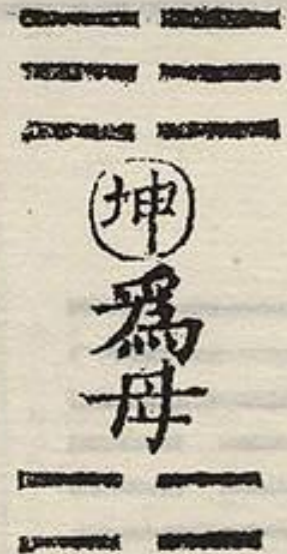 坤爲母